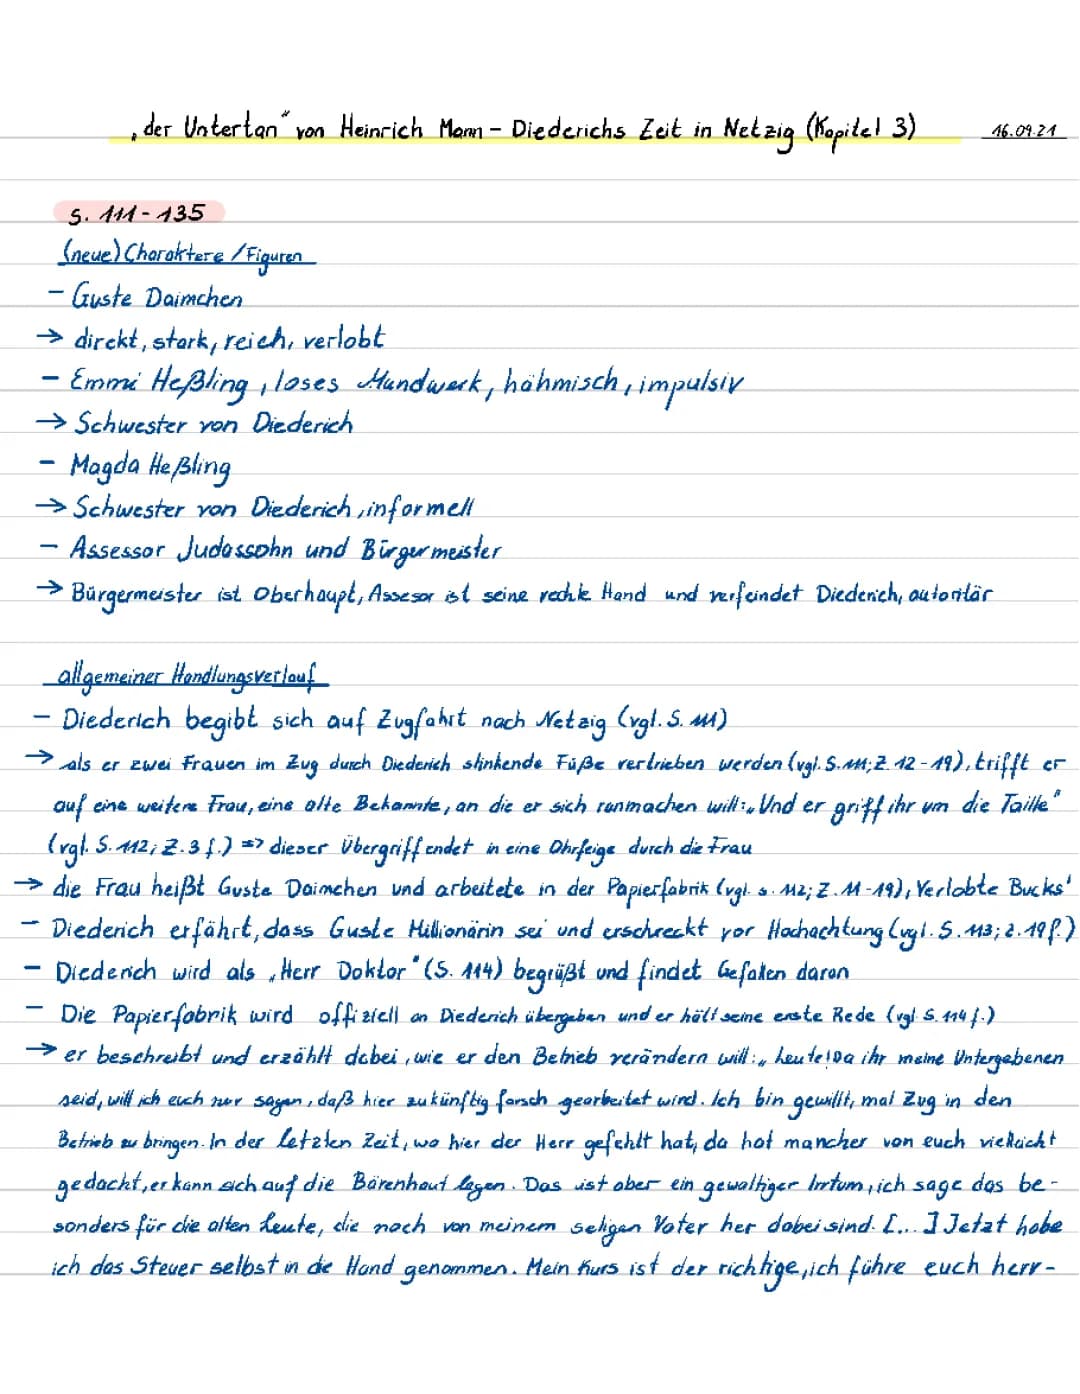 „der Untertan" von Heinrich Mann - Diederichs Zeit in Netzig (Kapitel 3) 16.09.21
S. 111-135
(neue) Charaktere / Figuren
- Guste Daimchen
→ direkt, stark, reich, verlobt
- Emmi Heßling, loses Mundwerk, hähmisch, impulsiv
→ Schwester von Diederich
- Magda Heßling
→ Schwester von Diederich, informell
- Assessor Judassohn und Bürgermeister
→ Bürgermeister ist Oberhaupt, Assesor ist seine rechte Hand und verfeindet Diederich, autoritär
allgemeiner Handlungsverlauf
- Diederich begibt sich auf Zugfahrt nach Netzig (vgl. S. 111)
→ als er zwei Frauen im Zug durch Diederich stinkende Füße vertrieben werden (vgl. S. 111; Z. 12-19), trifft er
auf eine weitere Frau, eine alte Bekannte, an die er sich ranmachen will: „Und er griff ihr um die Taille"
(vgl. S. 112; Z. 3 f.) => dieser Übergriff endet in eine Ohrfeige durch die Frau
→ die Frau heißt Guste Daimchen und arbeitete in der Papierfabrik (vgl. S. 112; Z. 11-19), Verlobte Bucks'
- Diederich erfährt, dass Guste Millionärin sei und erschreckt vor Hochachtung (vgl. S. 113; Z. 19 f.)
- Diederich wird als „Herr Doktor" (S. 114) begrüßt und findet Gefallen daran
- Die Papierfabrik wird offiziell an Diederich übergeben und er hält seine erste Rede (vgl. S. 114 f.)
→ er beschreibt und erzählt dabei, wie er den Betrieb verändern will: „Leute! Da ihr meine Untergebenen
seid, will ich euch nur sagen, daß hier zukünftig forsch gearbeitet wird. Ich bin gewillt, mal Zug in den
Betrieb zu bringen. In der letzten Zeit, wo hier der Herr gefehlt hat, da hat mancher von euch vielleicht
gedacht, er kann sich auf die Bärenhaut legen. Das ist aber ein gewaltiger Irrtum, ich sage das be-
sonders für die alten Leute, die noch von meinem seligen Vater her dabei sind. [...] Jetzt habe
ich das Steuer selbst in die Hand genommen. Mein Kurs ist der richtige, ich führe euch herr-